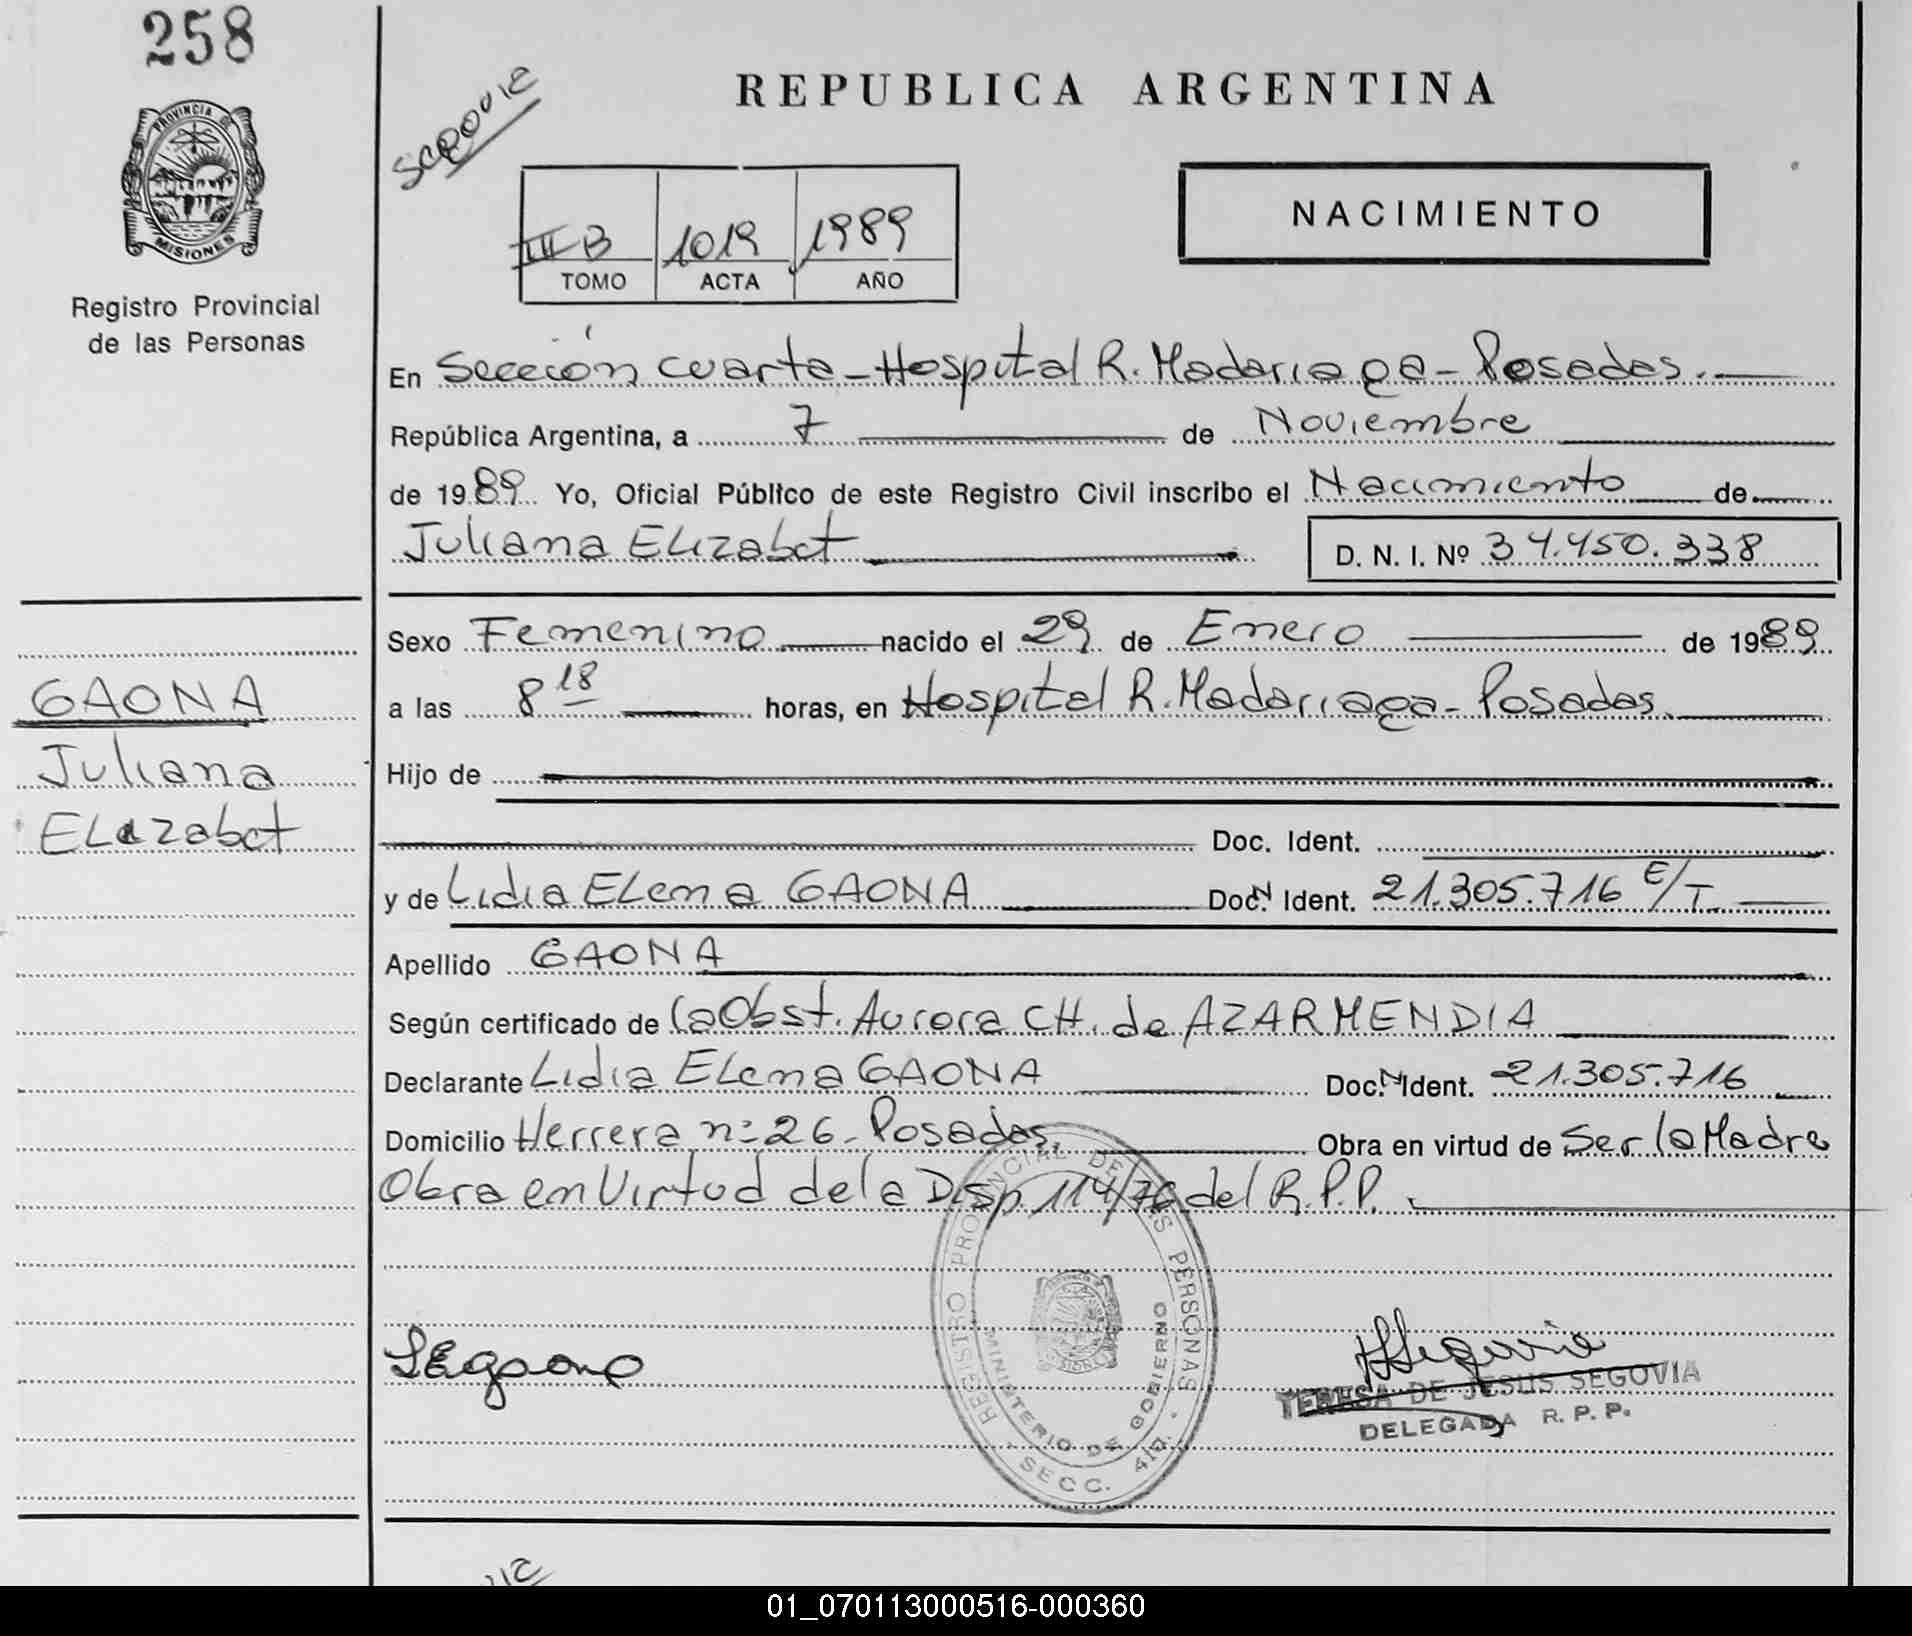 258
PROVINCIA DE
MISIONES
Registro Provincial
de las Personas
GAONA
Juliana
Elizabet
Segovia
REPUBLICA ARGENTINA
III B 1019 1989
TOMO ACTA AÑO
NACIMIENTO
En Sección cuarta - Hospital R. Madariaga - Posadas.
República Argentina, a 7 de Noviembre
de 1989 Yo, Oficial Público de este Registro Civil inscribo el Nacimiento de
Juliana Elizabet D. N. I. Nº 34.450.338
Sexo Femenino nacido el 29 de Enero de 1989
a las 8 18 horas, en Hospital R. Madariaga - Posadas.
Hijo de
Doc. Ident.
y de Lidia Elena GAONA Doc. N Ident. 21.305.716 E/T.
Apellido GAONA
Según certificado de la Obst. Aurora CH. de AZARMENDIA
Declarante Lidia Elena GAONA Doc. N Ident. 21.305.716
Domicilio Herrera nº 26 - Posadas. Obra en virtud de Ser la Madre
Obra en Virtud de la Disp. 114/76 del R.P.P.
REGISTRO PROVINCIAL DE LAS PERSONAS
MINISTERIO DE GOBIERNO
SECC. 4TA.
MISIONES
LEgaona
TSegovia
TERESA DE JESUS SEGOVIA
DELEGADA R. P. P.
01_070113000516-000360